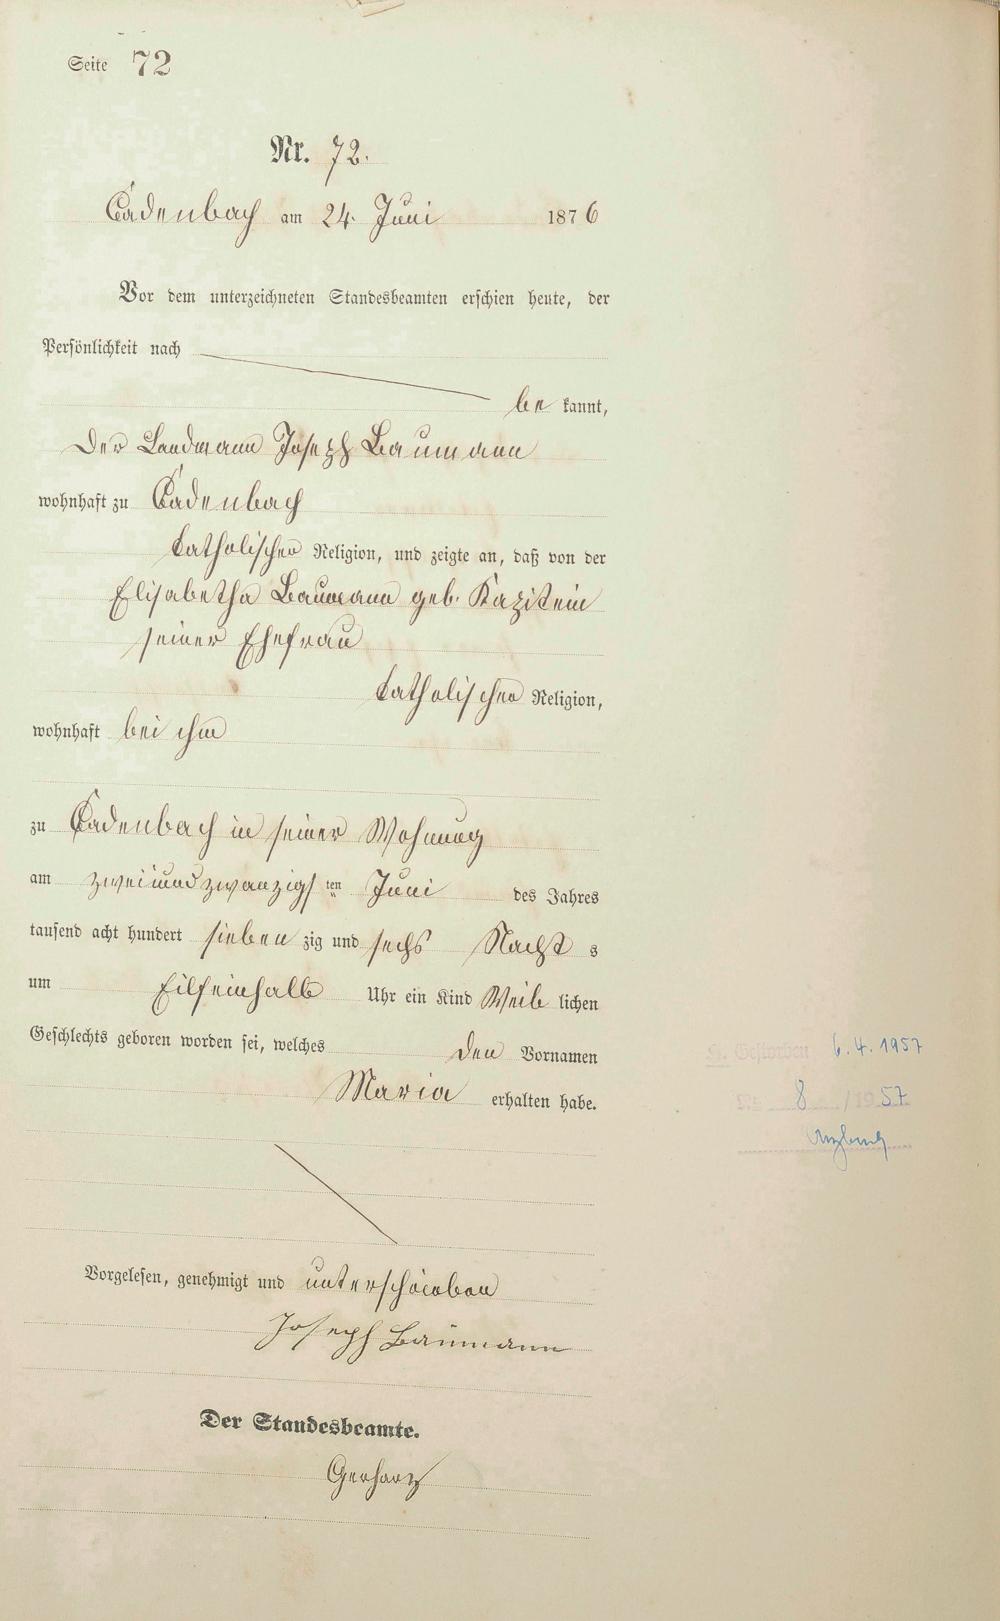 Seite 72
Nr. 72.
Cadenbach am 24. Juni 1876
Vor dem unterzeichneten Standesbeamten erschien heute, der
Persönlichkeit nach
be kannt,
der Landmann Joseph Baumann
wohnhaft zu Cadenbach
katholischer Religion, und zeigte an, daß von der
Elisabetha Baumann geb. Kazitein
seiner Ehefrau
katholischer Religion,
wohnhaft bei ihm
zu Cadenbach in seiner Wohnung
am zweiundzwanzigs ten Juni des Jahres
tausend acht hundert sieben zig und sechs Nacht s
um Eilfeinhalb Uhr ein Kind Weib lichen
Geschlechts geboren worden sei, welches den Vornamen
Maria erhalten habe.
Gestorben 6.4.1957
Nr. 8 /1957
Arzbach
Vorgelesen, genehmigt und unterschrieben
Joseph Baumann
Der Standesbeamte.
Gerharz